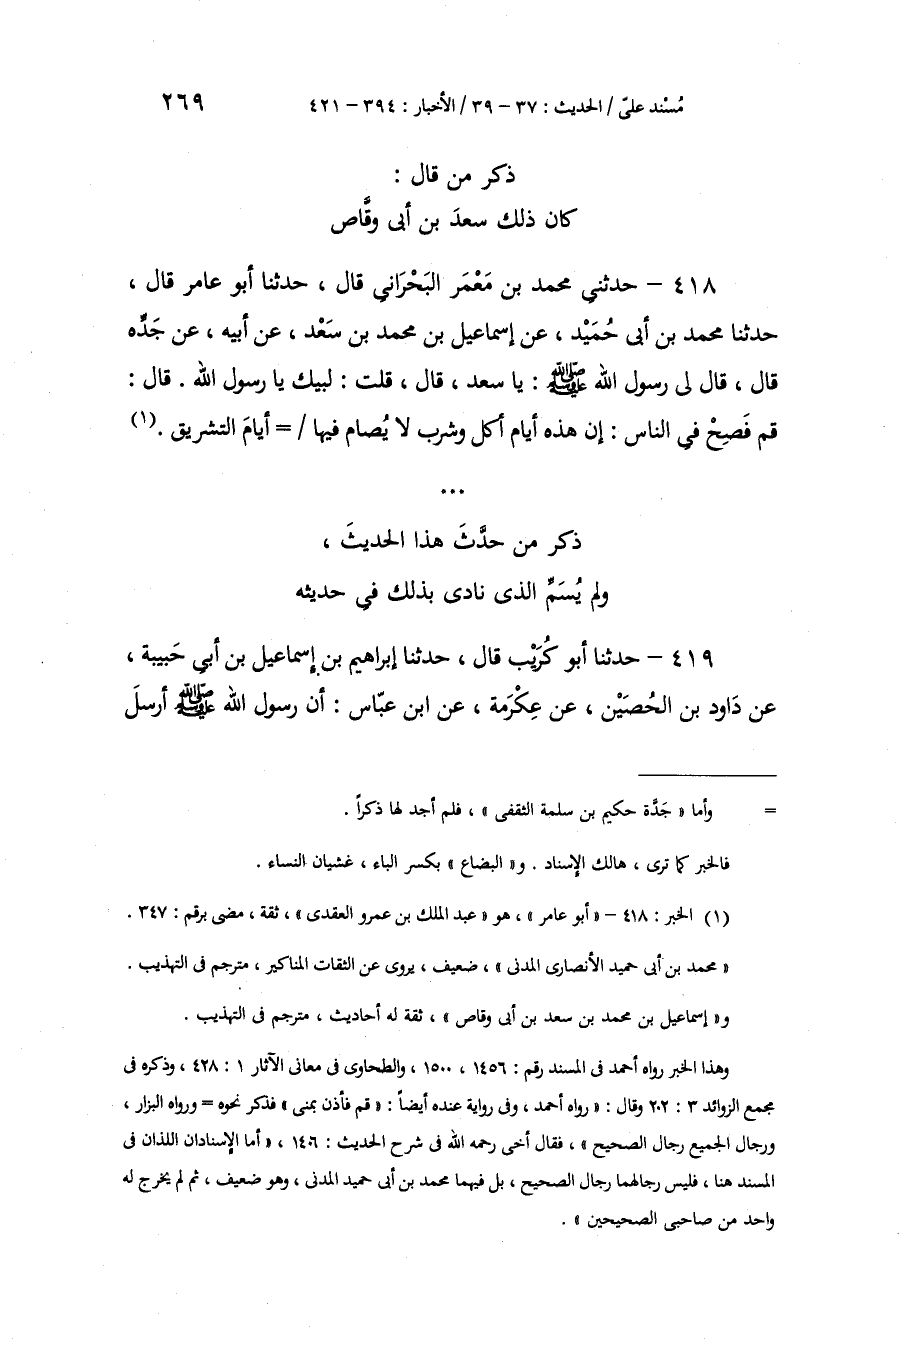 مُسْند علىّ / الحديث : ٣٧ – ٣٩ / الأخبار : ٣٩٤ – ٤٢١ ٢٦٩
ذكر من قال :
كان ذلك سعدَ بن أبى وقَّاص
٤١٨ – حدثني محمد بن مَعْمَر البَحْرَاني قال ، حدثنا أبو عامر قال ،
حدثنا محمد بن أبى حُمَيْد ، عن إسماعيل بن محمد بن سَعْد ، عن أبيه ، عن جَدِّه
قال ، قال لى رسول الله ﷺ : يا سعد ، قال ، قلت : لبيك يا رسول الله . قال :
قم فَصِحْ في الناس : إن هذه أيام أكل وشرب لا يُصام فيها / = أيامَ التشريق .(١)
...
ذكر من حدَّثَ هذا الحديثَ ،
ولم يُسَمِّ الذى نادى بذلك في حديثه
٤١٩ – حدثنا أبو كُرَيْب قال ، حدثنا إبراهيم بن إسماعيل بن أبي حَبيبة ،
عن دَاود بن الحُصَيْن ، عن عِكْرَمة ، عن ابن عبّاس : أن رسول الله ﷺ أرسلَ
= وأما « جَدَّة حكيم بن سلمة الثقفى » ، فلم أجد لها ذكراً .
فالخبر كما ترى ، هالك الإسناد . و« البضاع » بكسر الباء ، غشيان النساء .
(١) الخبر : ٤١٨ – « أبو عامر » ، هو « عبد الملك بن عمرو العقدى » ، ثقة ، مضى برقم : ٣٤٧ .
« محمد بن أبى حميد الأنصارى المدنى » ، ضعيف ، يروى عن الثقات المناكير ، مترجم فى التهذيب .
و« إسماعيل بن محمد بن سعد بن أبى وقاص » ، ثقة له أحاديث ، مترجم فى التهذيب .
وهذا الخبر رواه أحمد فى المسند رقم : ١٤٥٦ ، ١٥٠٠ ، والطحاوى فى معانى الآثار ١ : ٤٢٨ ، وذكره فى
مجمع الزوائد ٣ : ٢٠٢ وقال : « رواه أحمد ، وفى رواية عنده أيضاً : « قم فأذن بمنى » فذكر نحوه = ورواه البزار ،
ورجال الجميع رجال الصحيح » ، فقال أخى رحمه الله فى شرح الحديث : ١٤٠٦ ، « أما الإسنادان اللذان فى
المسند هنا ، فليس رجالهما رجال الصحيح ، بل فيهما محمد بن أبى حميد المدنى ، وهو ضعيف ، ثم لم يخرج له
واحد من صاحبى الصحيحين » .